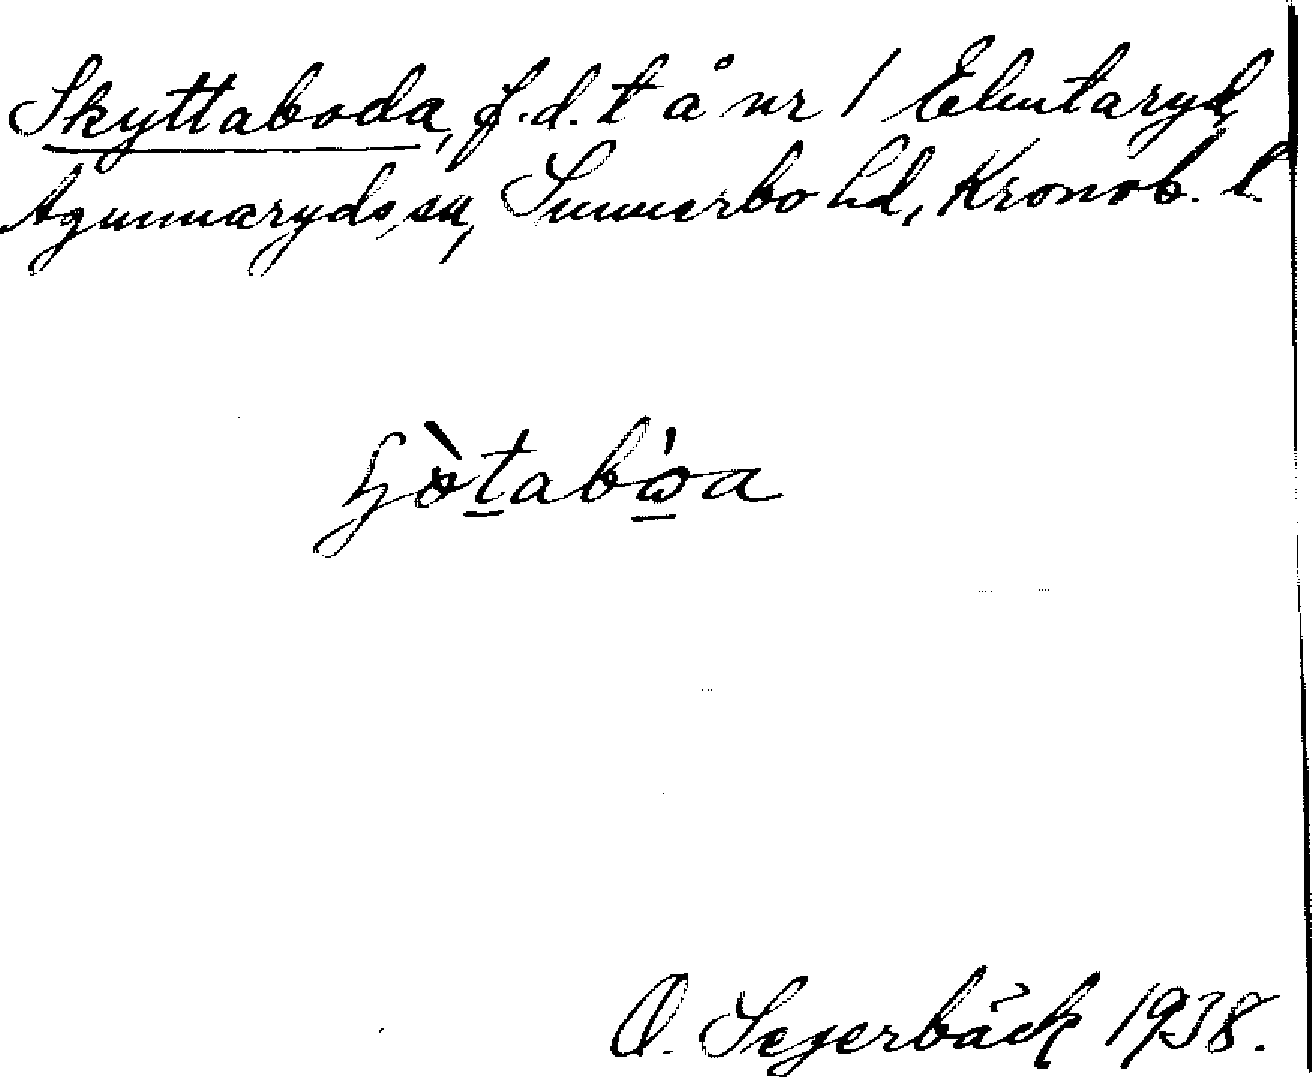 Skyttaboda, f.d. t å nr 1 Elmtaryd,
Agunnaryds sn, Sunnerbo hd, Kronob. l.
O. Segerbäck 1938.